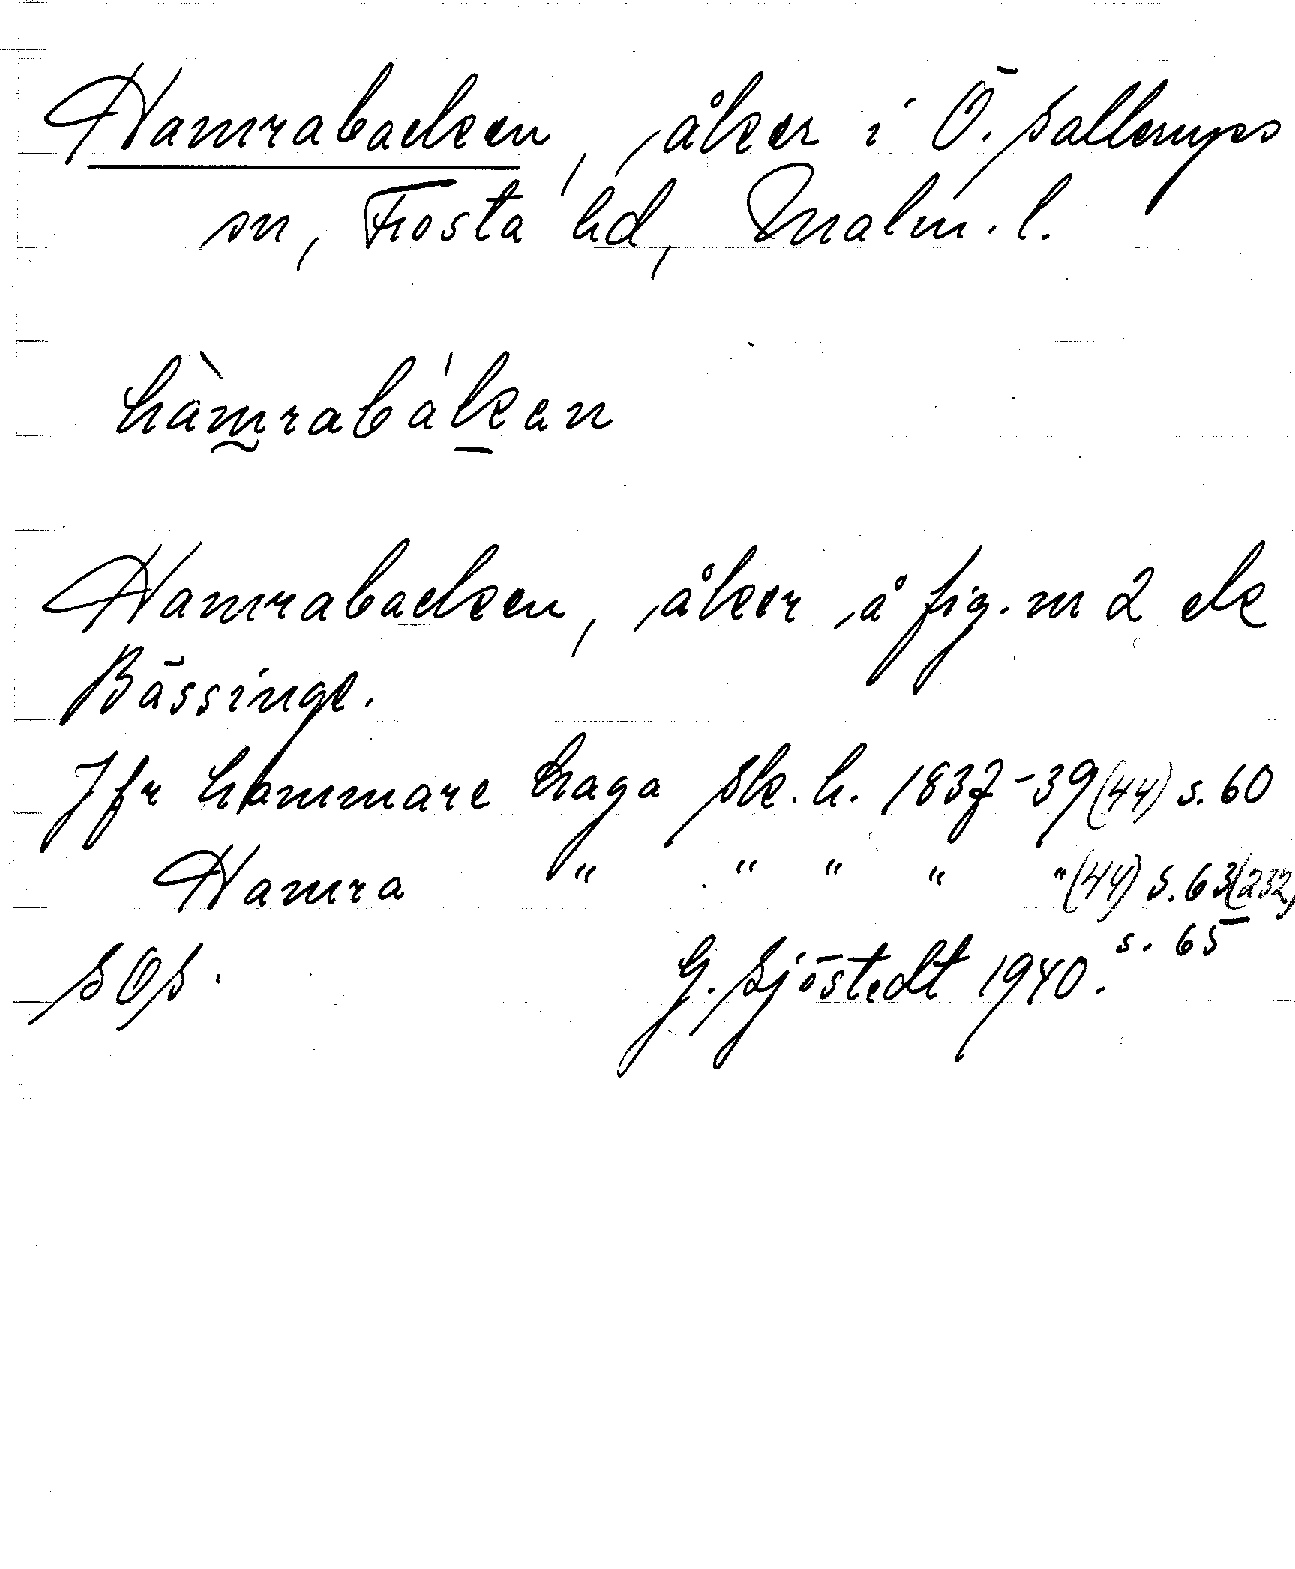 Hamrabacken, åker i Ö. Sallerups
sn, Frosta hd, Malm. l.
hàmrabákan
Hamrabacken, åker å fig. m 2 ek
Bässinge.
Jfr hammare haga sk. h. 1837-39 (44) s. 60
Hamra " " " " " (44) s. 63 (232,
s. 65
SOS. G. Sjöstedt 1940.